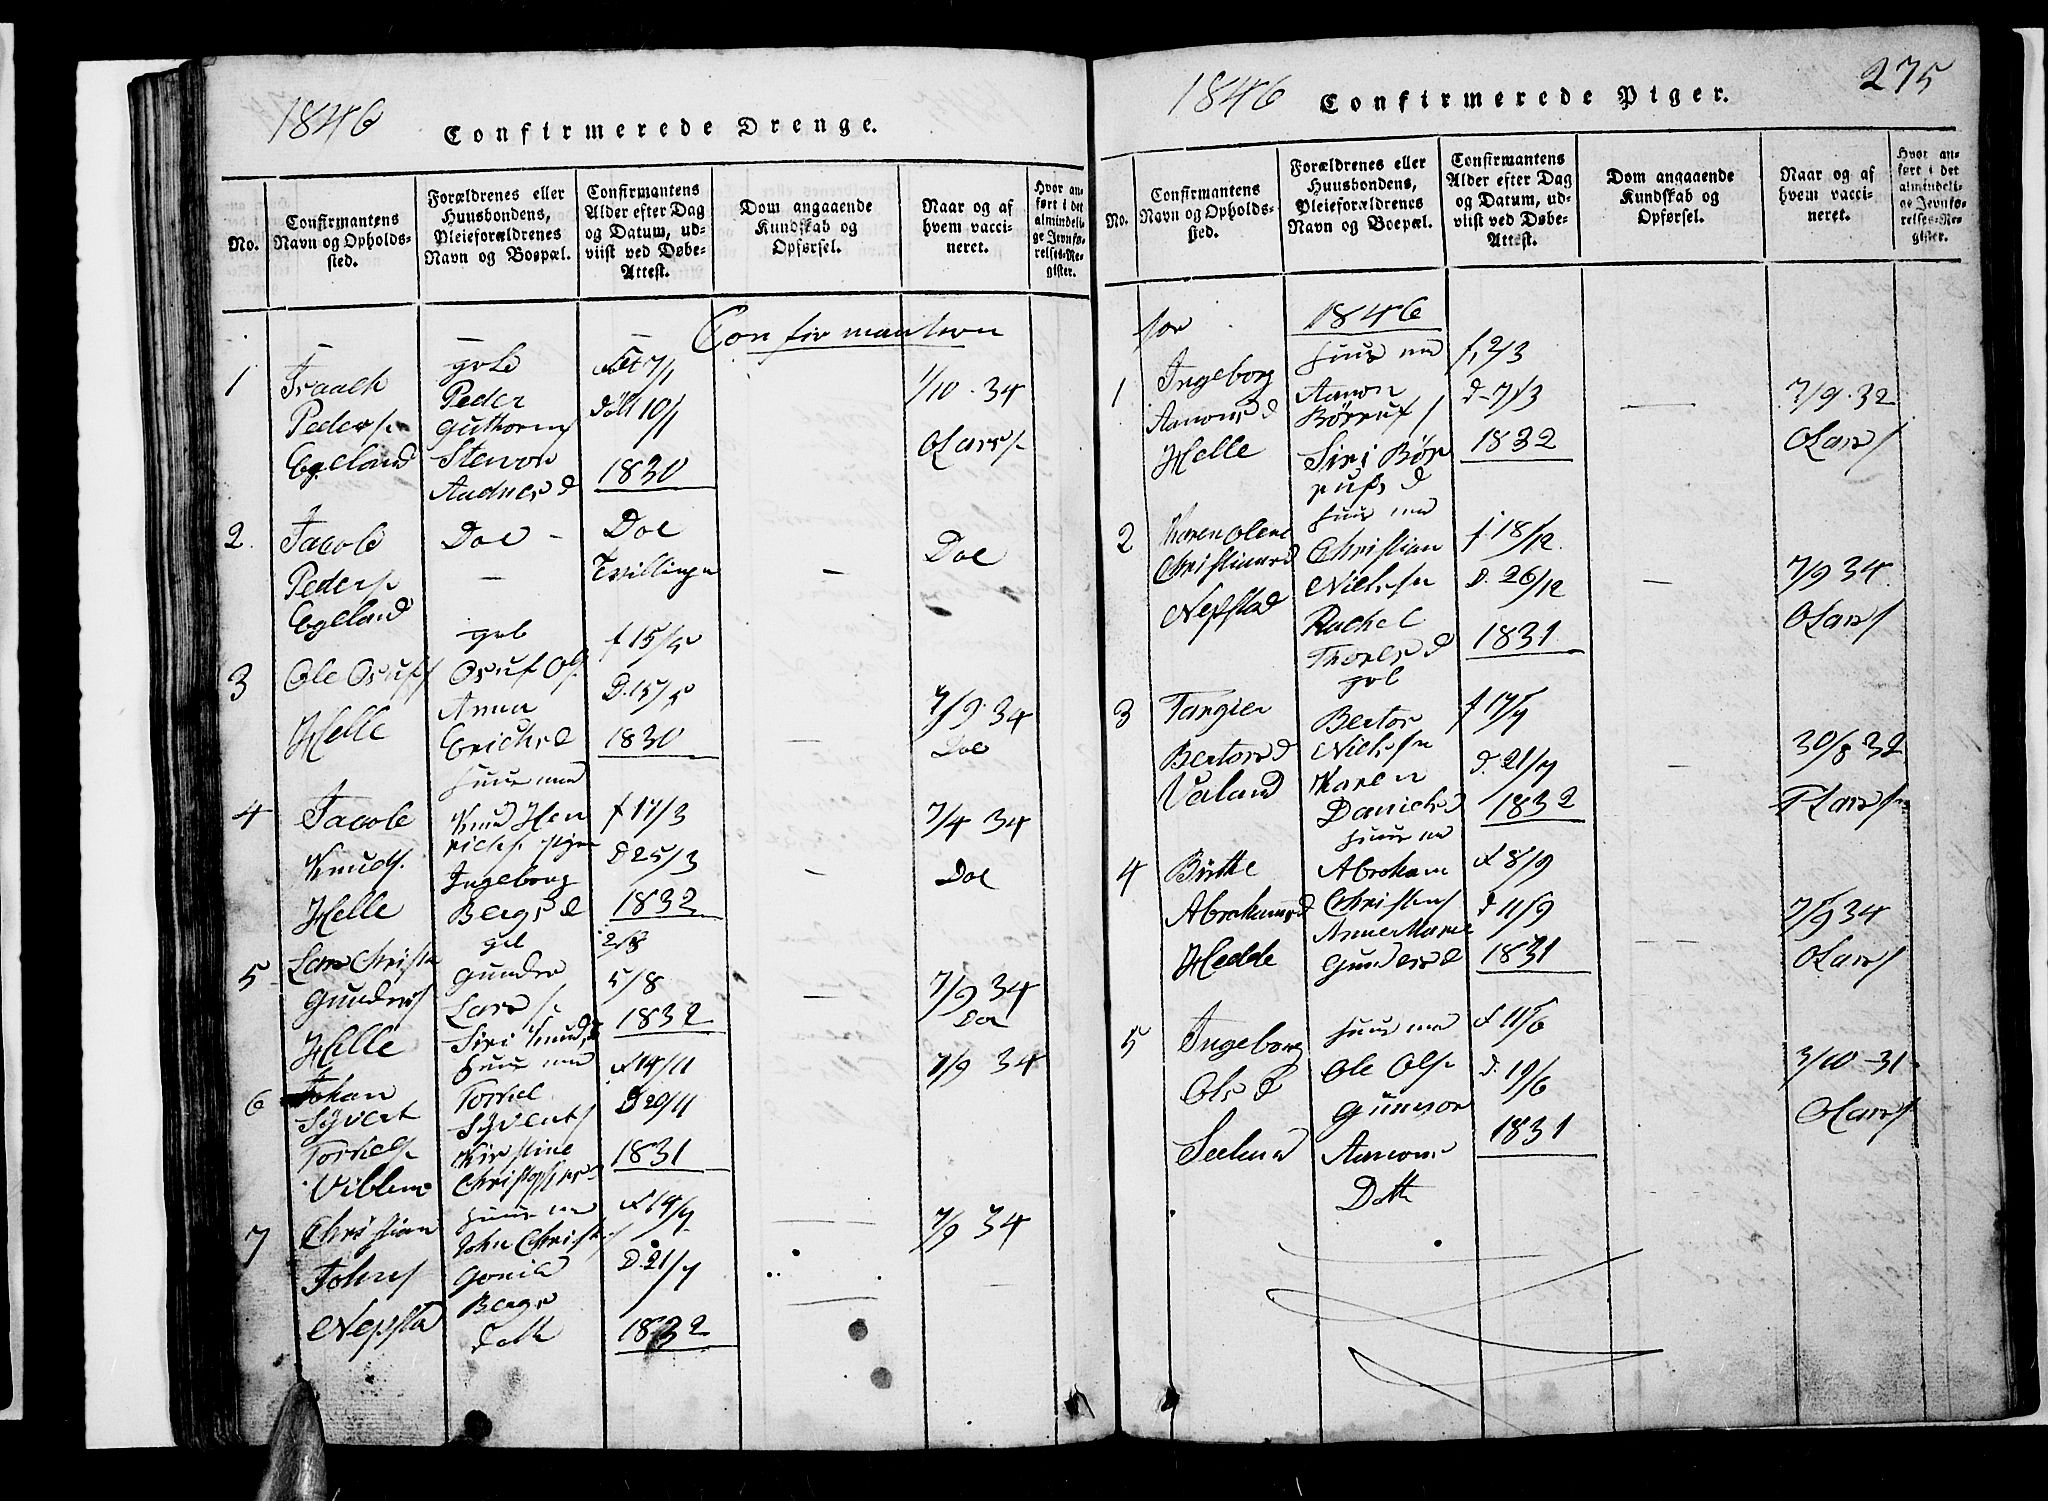 1846 Confirmerede Drenge.
No.
Confirmantens Navn og Opholds-sted.
Forældrenes eller Huusbondens, Pleieforældrenes Navn og Boepæl.
Confirmantens Alder efter Dag og Datum, ud-viist ved Døbe-Attest.
Dom angaaende Kundskab og Opførsel.
Naar og af hvem vacci-neret.
Hvor an-ført i det almindeli-ge Jevnfø-relses-Re-gister.
Confirmantern
1
Isaach
Peders
Egeland
Peder
Guthorms
Aadnes D
7/1
Døbt 10/1
1830
1/10 34
O Lars
2.
Jacob
Peders
Egeland
Do
Do
Tvillinger
Do
3
Ole Osufs
Helle
Osuf Ols
Anna
Erichs D
f 15/5
D. 15/5
1830
7/9 34
Do
4
Jacob
Knuds
Helle
huus md
Knud Hen
richs
Ingeborg
Bergs D
f 17/3
D 25/3
1832
7/4 34
Do
5
Gunders
Helle
Gunder
Lars
Siri Knuds D
5/8
1832
7/9 34
Do
6
Johan
Syvert
Torkels
huus md
Torkel
Syverts
Kirstine
f 14/11
D 20/11
1831
7/9 34
7
Christian
Johns
Nepsta
huus md
John Christ
Gonild
Bergs
Datt
f 14/7
D. 21/7
1832
7/9 34
1846 Confirmerede Piger. 275
No.
Confirmantens Navn og Opholds-sted.
Forældrenes eller Huusbondens, Pleieforældrenes Navn og Boepæl.
Confirmantens Alder efter Dag og Datum, ud-viist ved Døbe-Attest.
Dom angaaende Kundskab og Opførsel.
Naar og af hvem vacci-neret.
Hvor an-ført i det almindeli-ge Jevnfø-relses-Re-gister.
for 1846
1
Ingeborg
Aanons D
Helle
huus md
Aanon
Børrufs
Siri Bør
rufs D
f. 2/3
D 7/3
1832
7/9 32
O Lars
2
Karen Olene
Christians D
Nepstad
huus md
Christian
Nielsen
Rachel
f 18/12
D. 26/12
1831
7/9 34
O Lars
3
Bertors D
Bertor
Nielsen
Karen
Daniels D
f 17/7
D. 21/7
1832
30/8 32
Lars
4
Birthe
Abrahams D
Hedde
huus md
Abraham
Christens
Anne Marie
Gunders D
f 8/9
D 11/9
1831
7/9 34
O Lars
5
Ingeborg
Ols D
huus md
Ole Ols
Aanons
Datt
f 11/6
D. 19/6
1831
3/10 31
O Lars